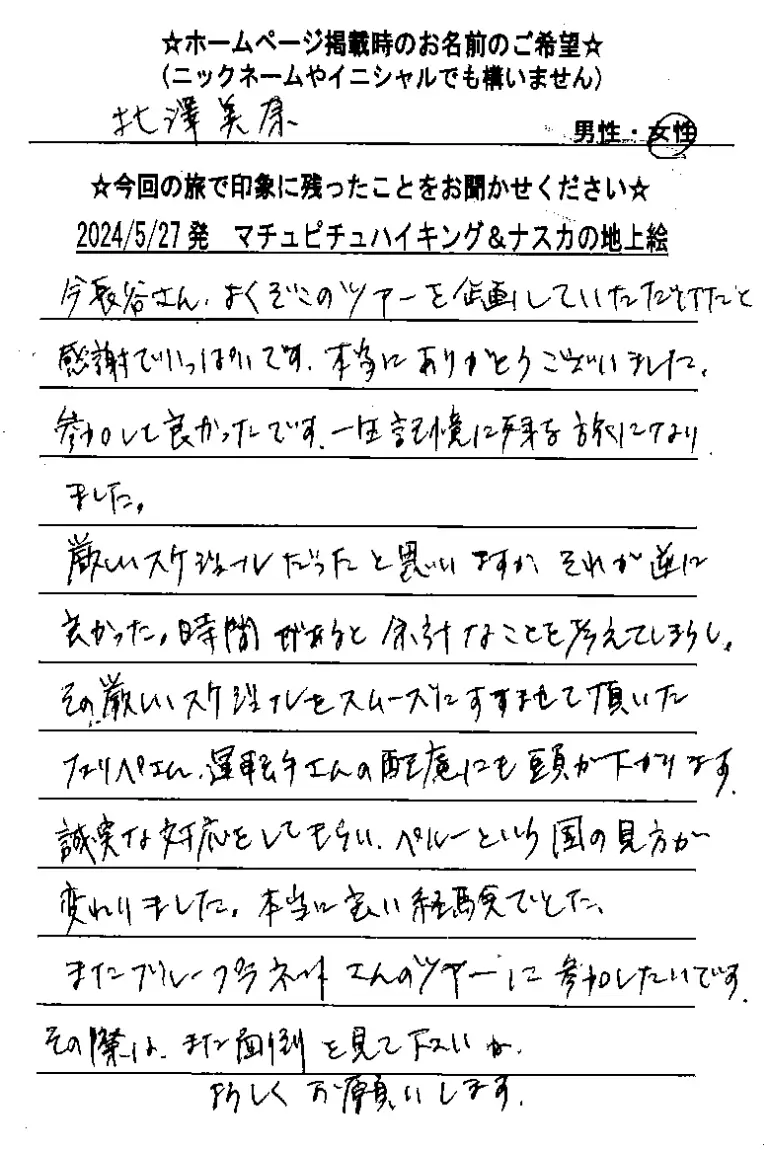 ☆ホームページ掲載時のお名前のご希望☆
(ニックネームやイニシャルでも構いません)
北澤美奈
男性・女性
☆今回の旅で印象に残ったことをお聞かせください☆
2024/5/27発 マチュピチュハイキング&ナスカの地上絵
長谷さん、よくぞこのツアーを企画していただけたと
感謝でいっぱいです。本当にありがとうございました。
参加して良かったです。一生記憶に残る旅になり
ました。
厳しいスケジュールだったと思いますが、それが逆に
良かった。時間があると余計なことを考えてしまうし。
その厳しいスケジュールをスムーズにすすませて頂いた
フェリペさん、運転手さんの配慮にも頭が下がります。
誠実な対応をしてもらい、ペルーという国の見方が
変わりました。本当に良い経験でした。
またブループラネットさんのツアーに参加したいです。
その際は、また面倒を見て下さいな。
よろしくお願いします。